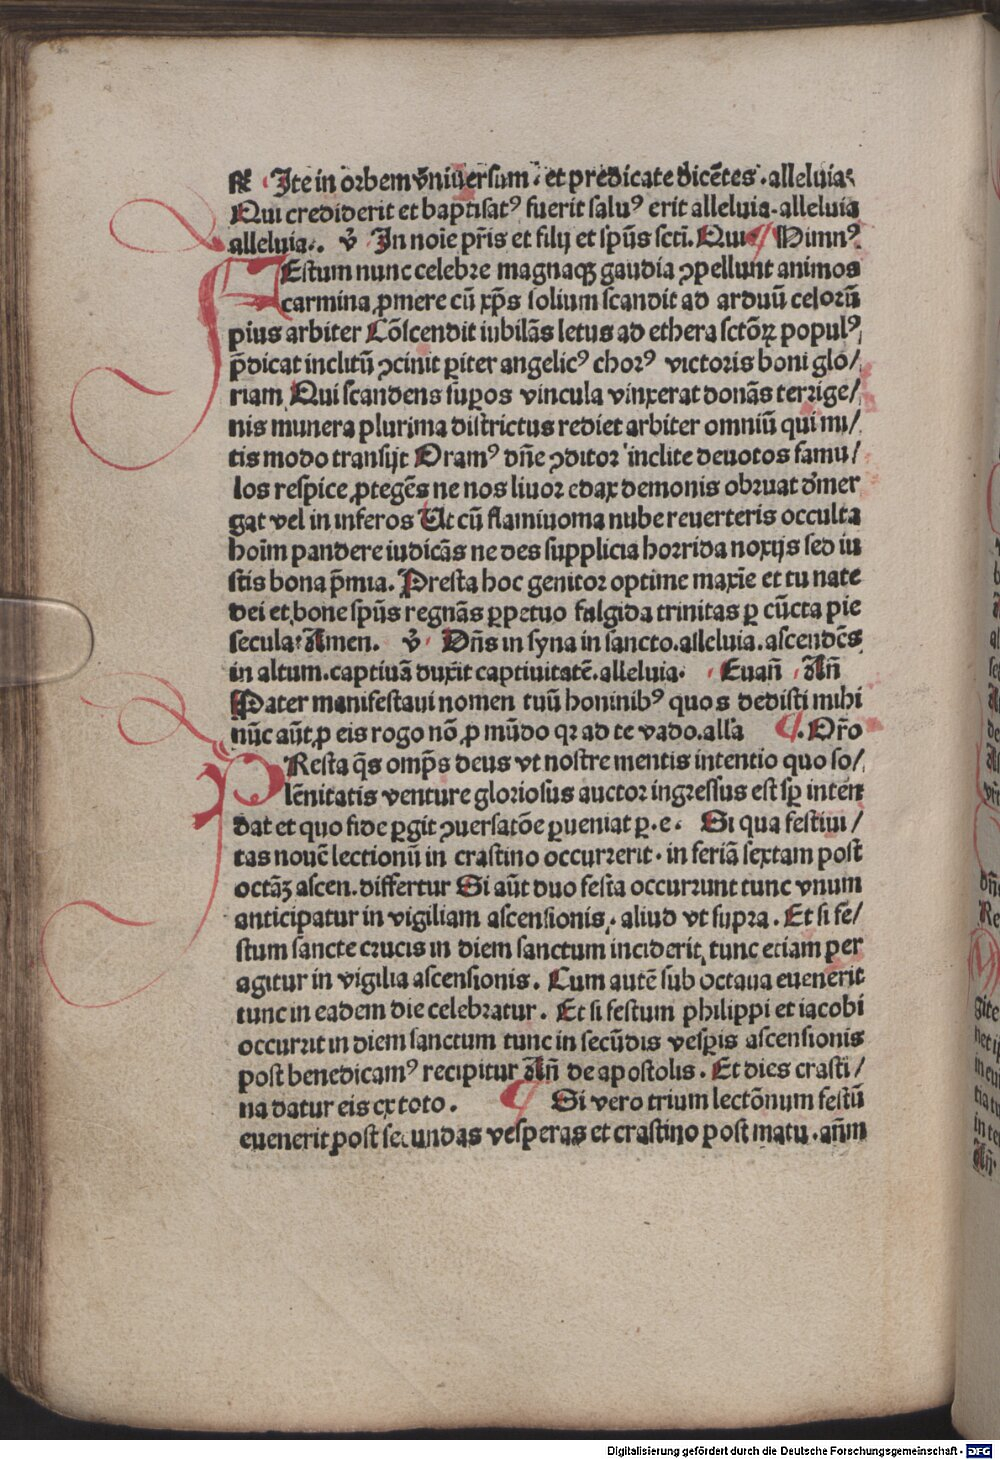 R Ite in orbem vniuersum. et predicate dicētes. alleluia.
Qui crediderit et baptisatꝰ fuerit saluꝰ erit alleluia. alleluia
alleluia. v̄ In noīe pr̄is et filij et sp̄us scti. Qui ¶ Himnꝰ.
FEstum nunc celebre magnaqꝫ gaudia ꝯpellunt animos
carmina ꝓmere cū xp̄s solium scandit ad arduū celorū
pius arbiter Cōscendit iubilās letus ad ethera sctōꝝ populꝰ,
p̄dicat inclitū ꝯcinit ꝑiter angelicꝰ chorꝰ victoris boni glo/
riam Qui scandens suꝑos vincula vinxerat donās terrige/
nis munera plurima districtus rediet arbiter omniū qui mi/
tis modo transijt Oramꝰ dn̄e ꝯditor inclite deuotos famu/
los respice ꝓtegēs ne nos liuor edax demonis obruat d'mer
gat vel in inferos Ut cū flamiuoma nube reuerteris occulta
hoīm pandere iudicās ne des supplicia horrida noxijs sed iu
stis bona p̄mia. Presta hoc genitor optime maxīe et tu nate
dei et bone sp̄us regnās ꝑpetuo falgida trinitas ꝑ cūcta pie
secula: Amen. v̄ Dn̄s in syna in sancto. alleluia. ascendēs
in altum. captiuā duxit captiuitatē. alleluia. Euan̄ An̄
Pater manifestaui nomen tuū hominibꝰ quos dedisti mihi
nūc aūt ꝓ eis rogo nō ꝓ mūdo qꝛ ad te vado. alla ¶. Or̄o
PResta qs omp̄s deus vt nostre mentis intentio quo so/
lēnitatis venture gloriosus auctor ingressus est sꝑ inten
dat et quo fide ꝑgit ꝯuersatōe ꝑueniat ꝑ. e. Si qua festiui/
tas nouē lectionū in crastino occurrerit. in feriā sextam post
octāꝫ ascen. differtur Si aūt duo festa occurrunt tunc vnum
anticipatur in vigiliam ascensionis. aliud vt supra. Et si fe/
stum sancte crucis in diem sanctum inciderit, tunc etiam per
agitur in vigilia ascensionis. Cum autē sub octaua euenerit
tunc in eadem die celebratur. Et si festum philippi et iacobi
occurrit in diem sanctum tunc in secūdis vesꝑis ascensionis
post benedicamꝰ recipitur An̄ de apostolis. Et dies crasti/
na datur eis ex toto. ¶ Si vero trium lectōnum festū
euenerit post secundas vesperas et crastino post matu. an̄m
Digitalisierung gefördert durch die Deutsche Forschungsgemeinschaft - DFG